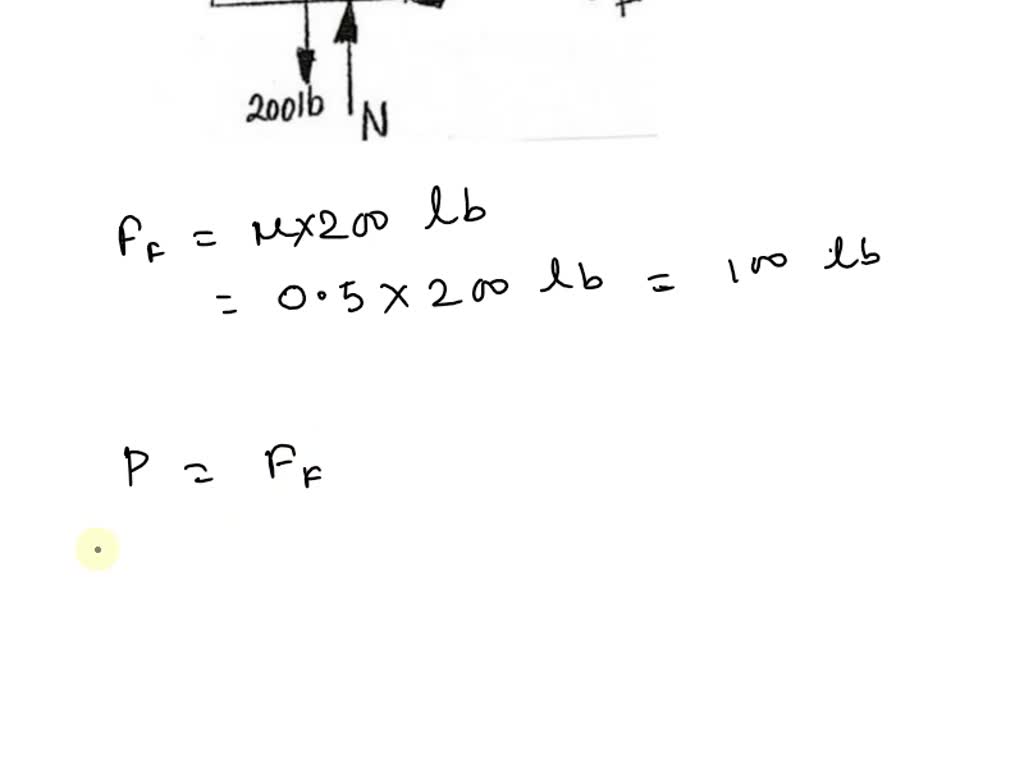 200lb
N
F_F = μ×200 lb
= 0.5 × 200 lb = 100 lb
P = F_F